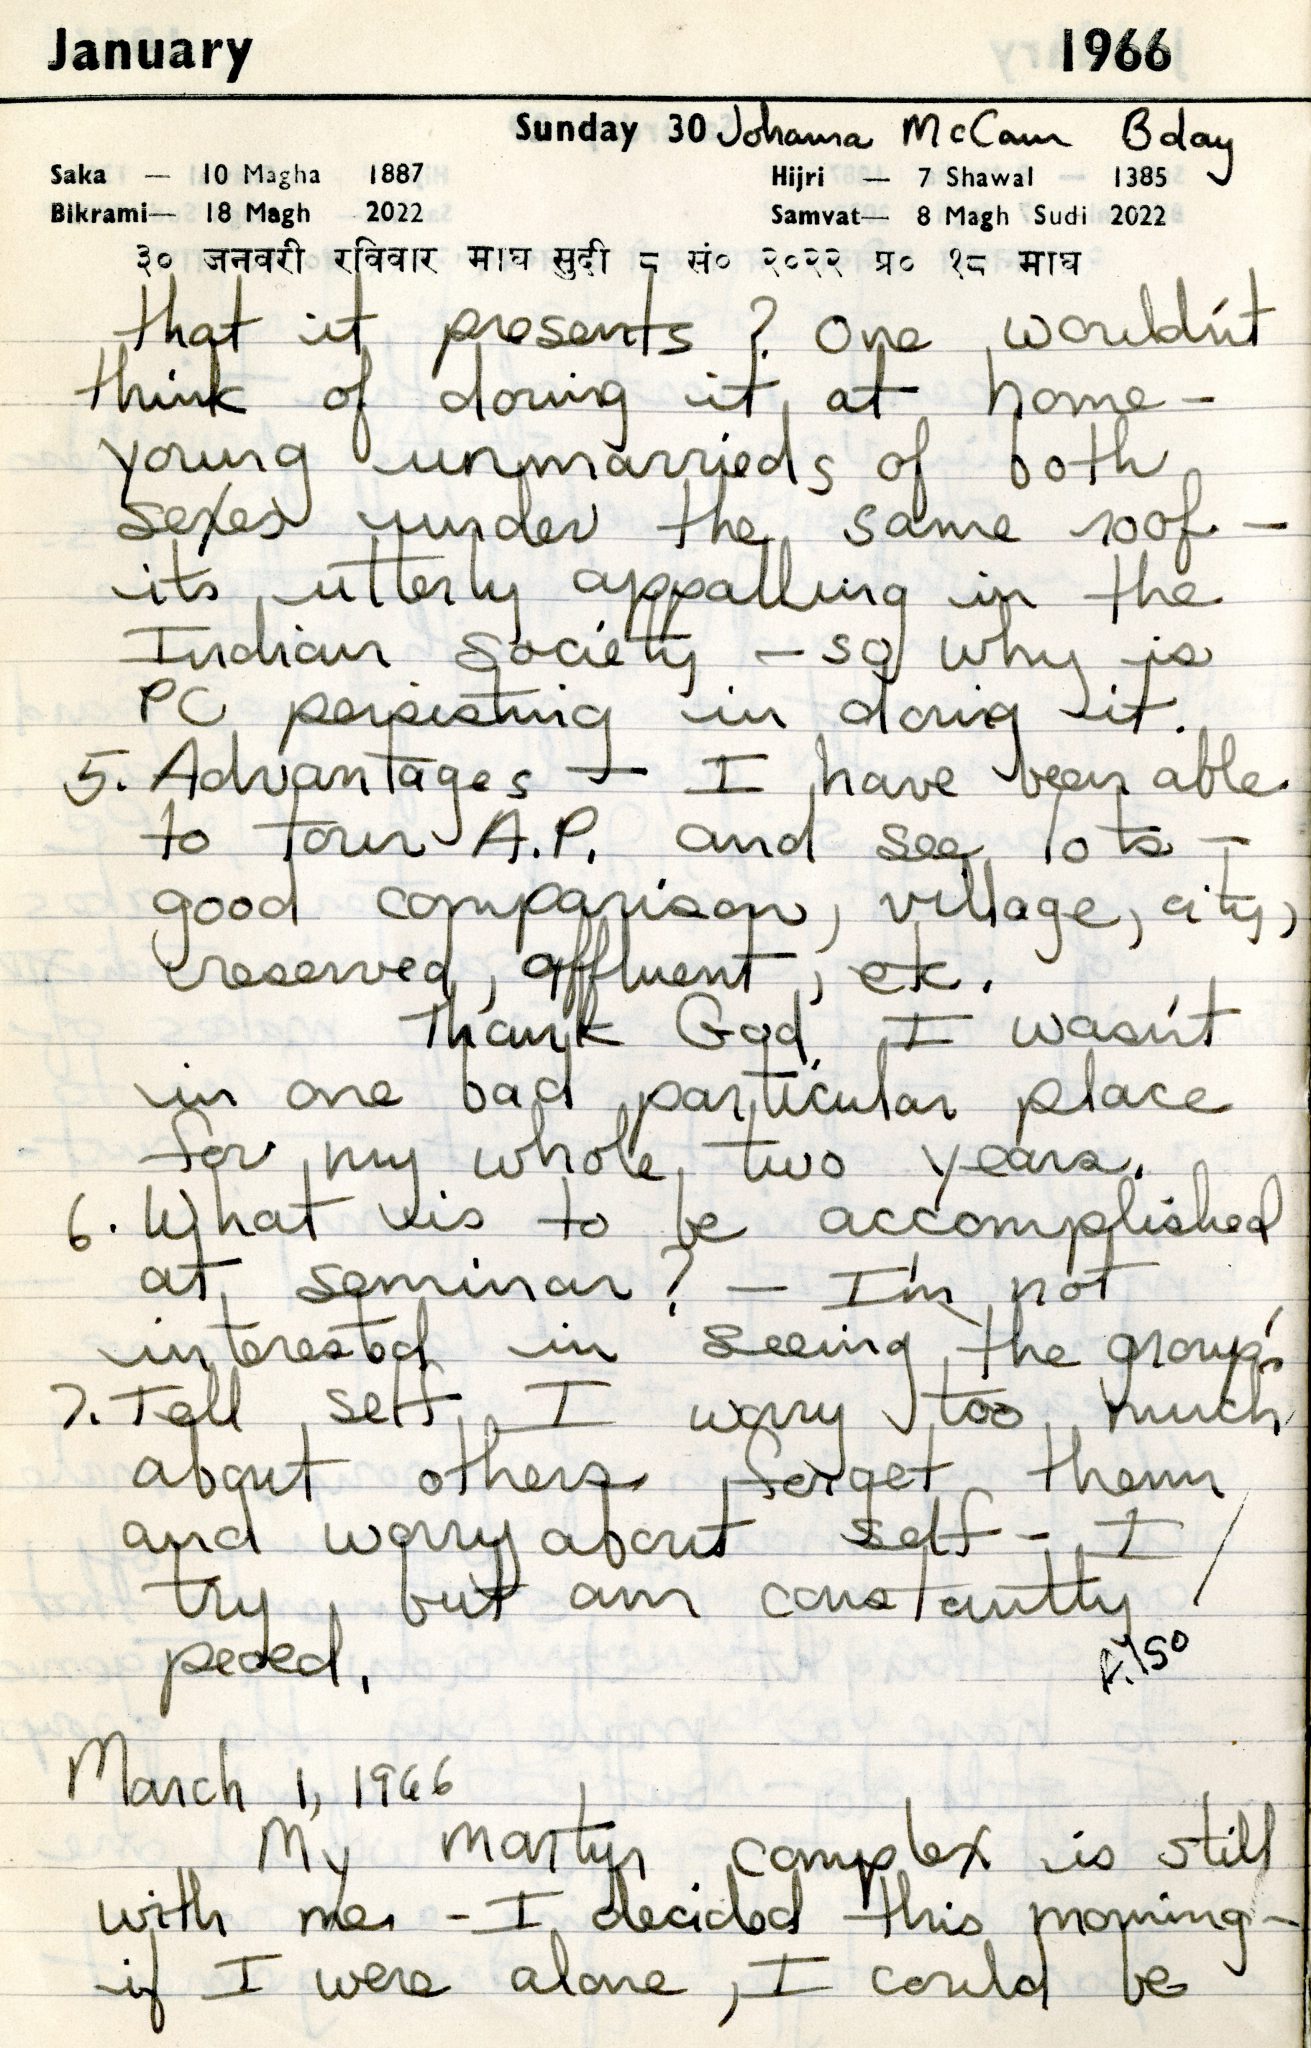 January 1966
Sunday 30 Johanna McCann Bday
Saka — 10 Magha 1887 Hijri — 7 Shawal 1385
Bikrami— 18 Magh 2022 Samvat— 8 Magh Sudi 2022
३० जनवरी रविवार माघ सुदी ८ सं० २०२२ प्र० १८ माघ
that it presents? One wouldn't
think of doing it at home -
young unmarrieds of both
sexes under the same roof -
its utterly appalling in the
Indian society - so why is
PC persisting in doing it.
5. Advantages - I have been able
to tour A.P. and see lots -
good comparison, village, city,
reserved, affluent, etc.
Thank God I wasn't
in one bad particular place
for my whole two years.
6. What is to be accomplished
at seminar? - I'm not
interested in seeing the group.
7. Tell self I worry too much
about others forget them
and worry about self - I
try but am constantly
peeved.
March 1, 1966
My martyr complex is still
with me - I decided this morning -
if I were alone, I could be